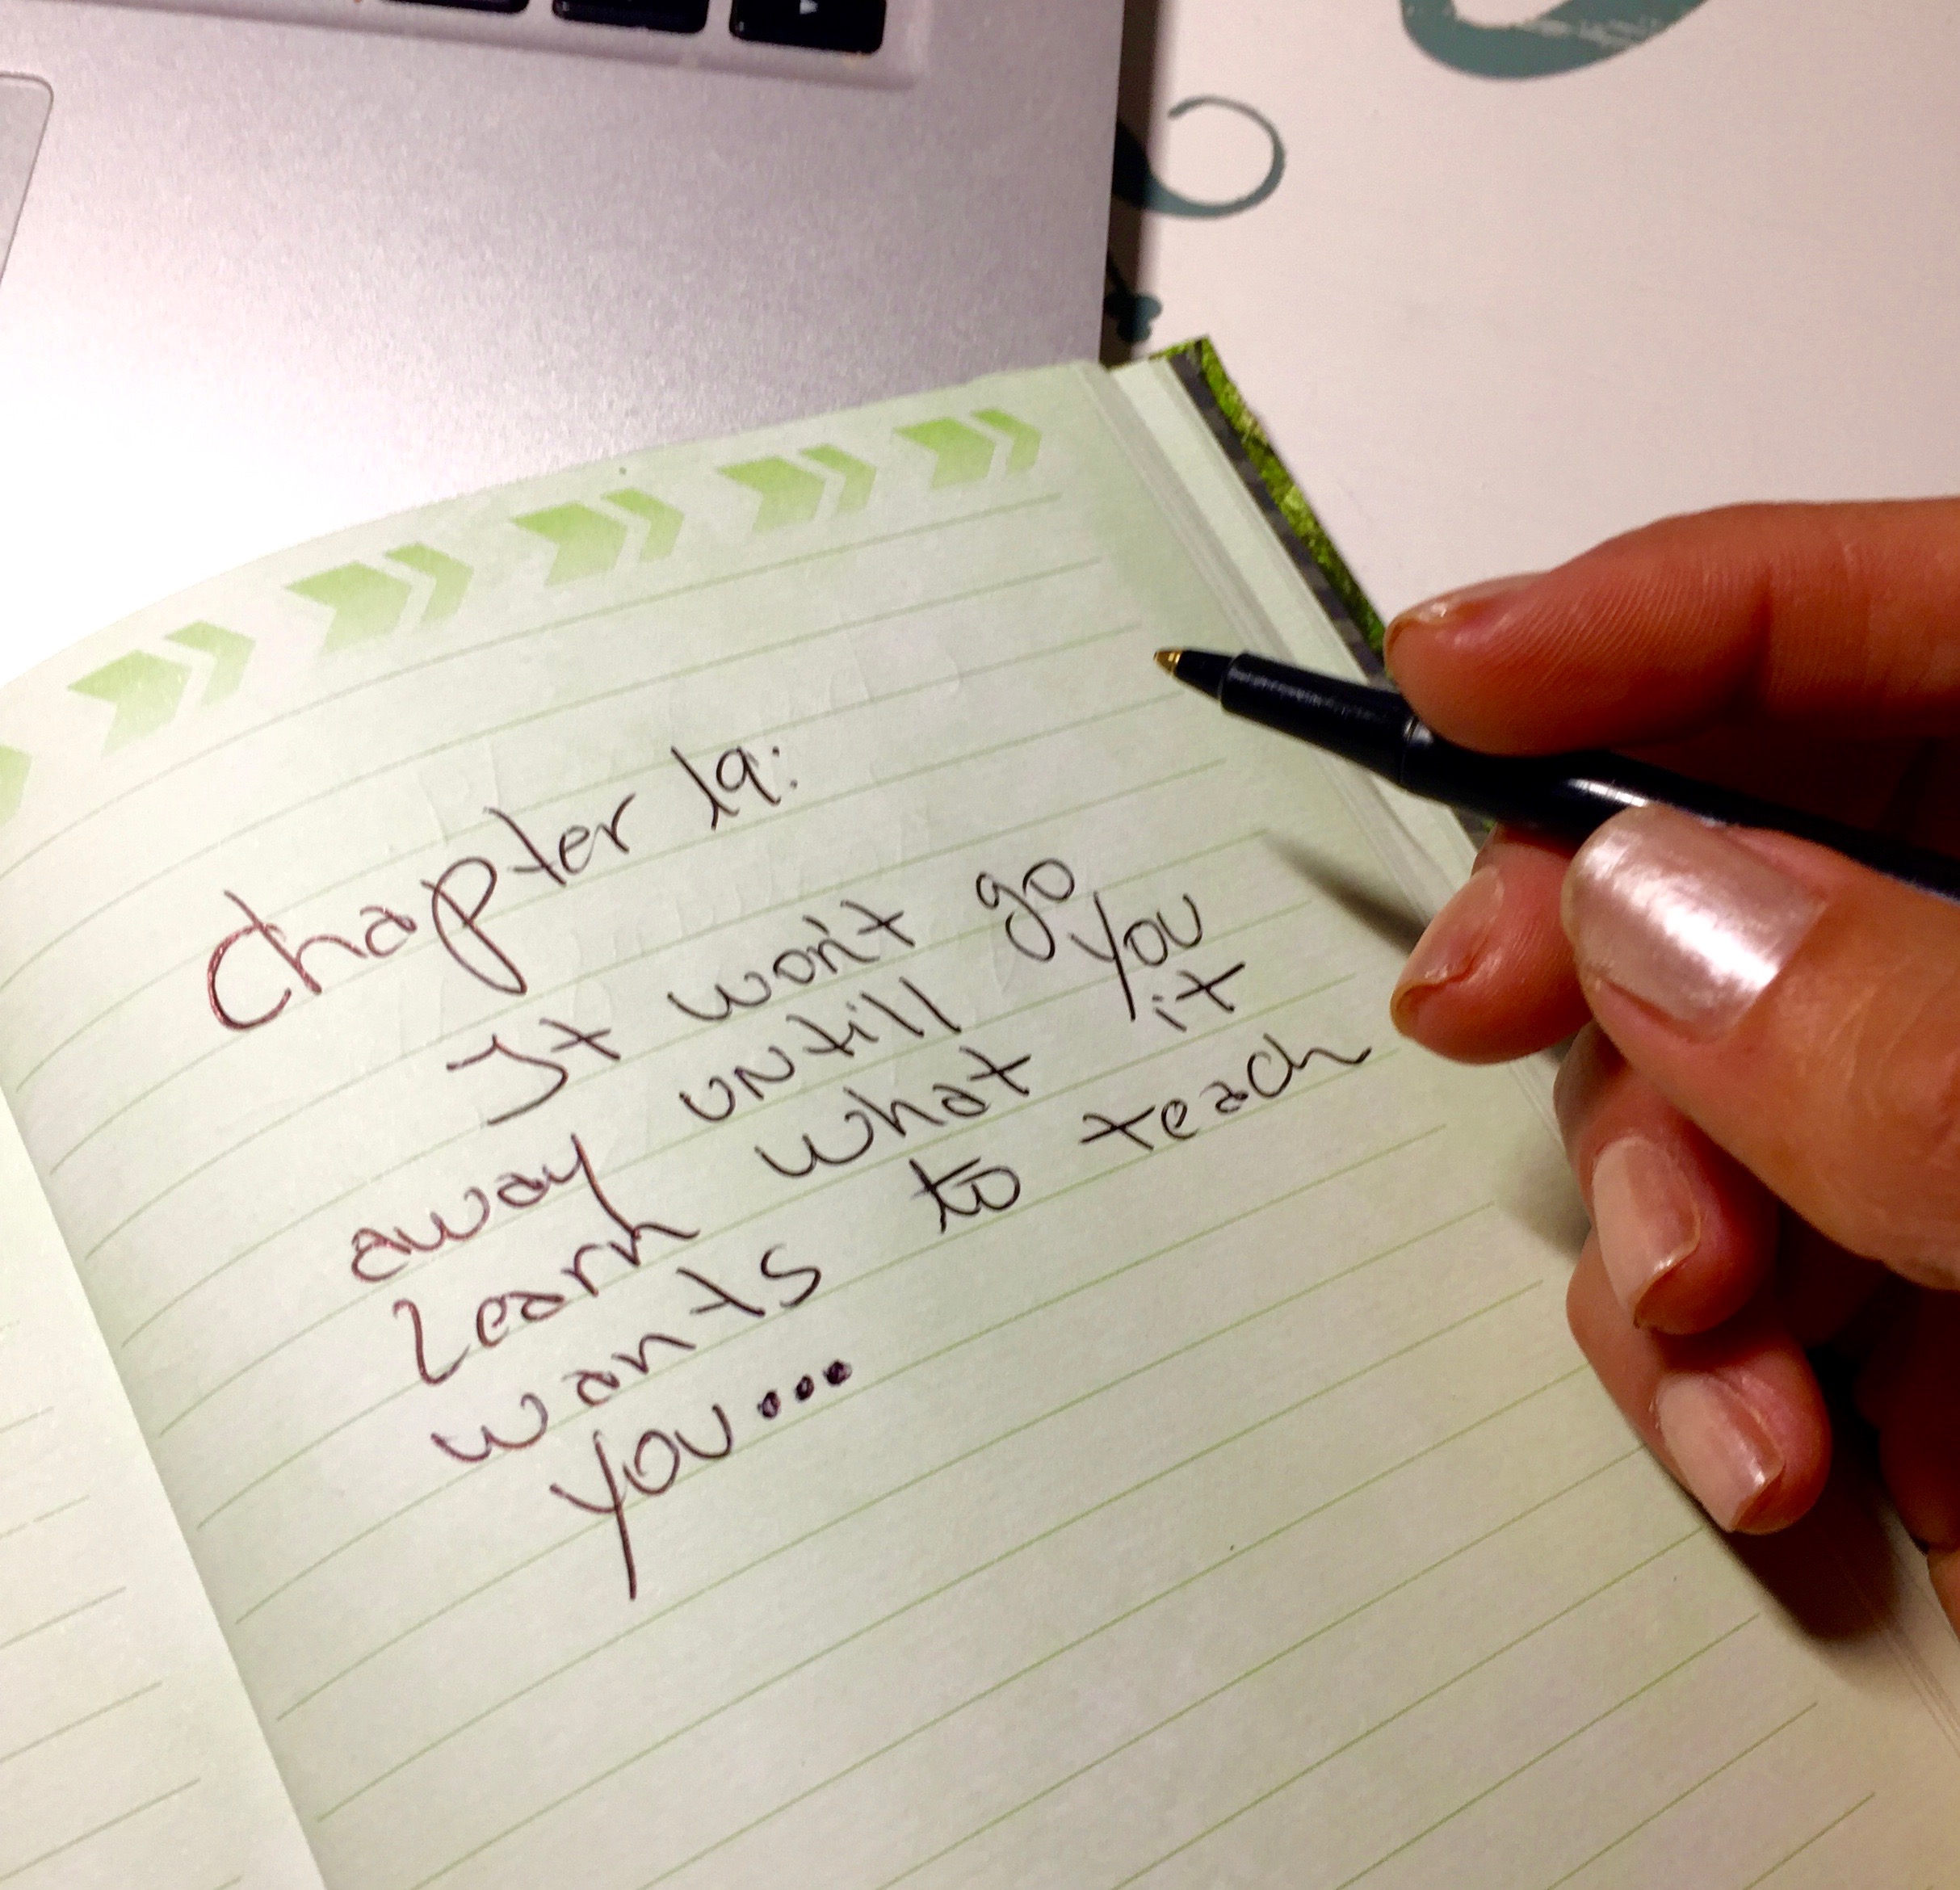 Chapter 19:
It won't go
away untill you
Learn what it
wants to teach
you...